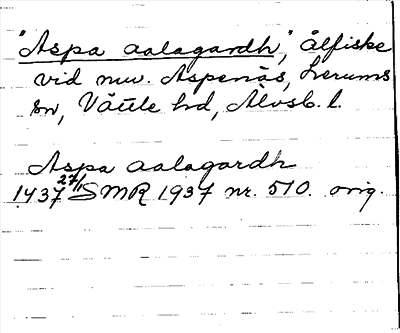 "Aspa aalagardh", ålfiske
vid nuv. Aspenäs, Lerums
sn, Vättle hd, Älvsb. l.
Aspa aalagardh
1437 27/1 SMR 1937 nr. 510. orig.